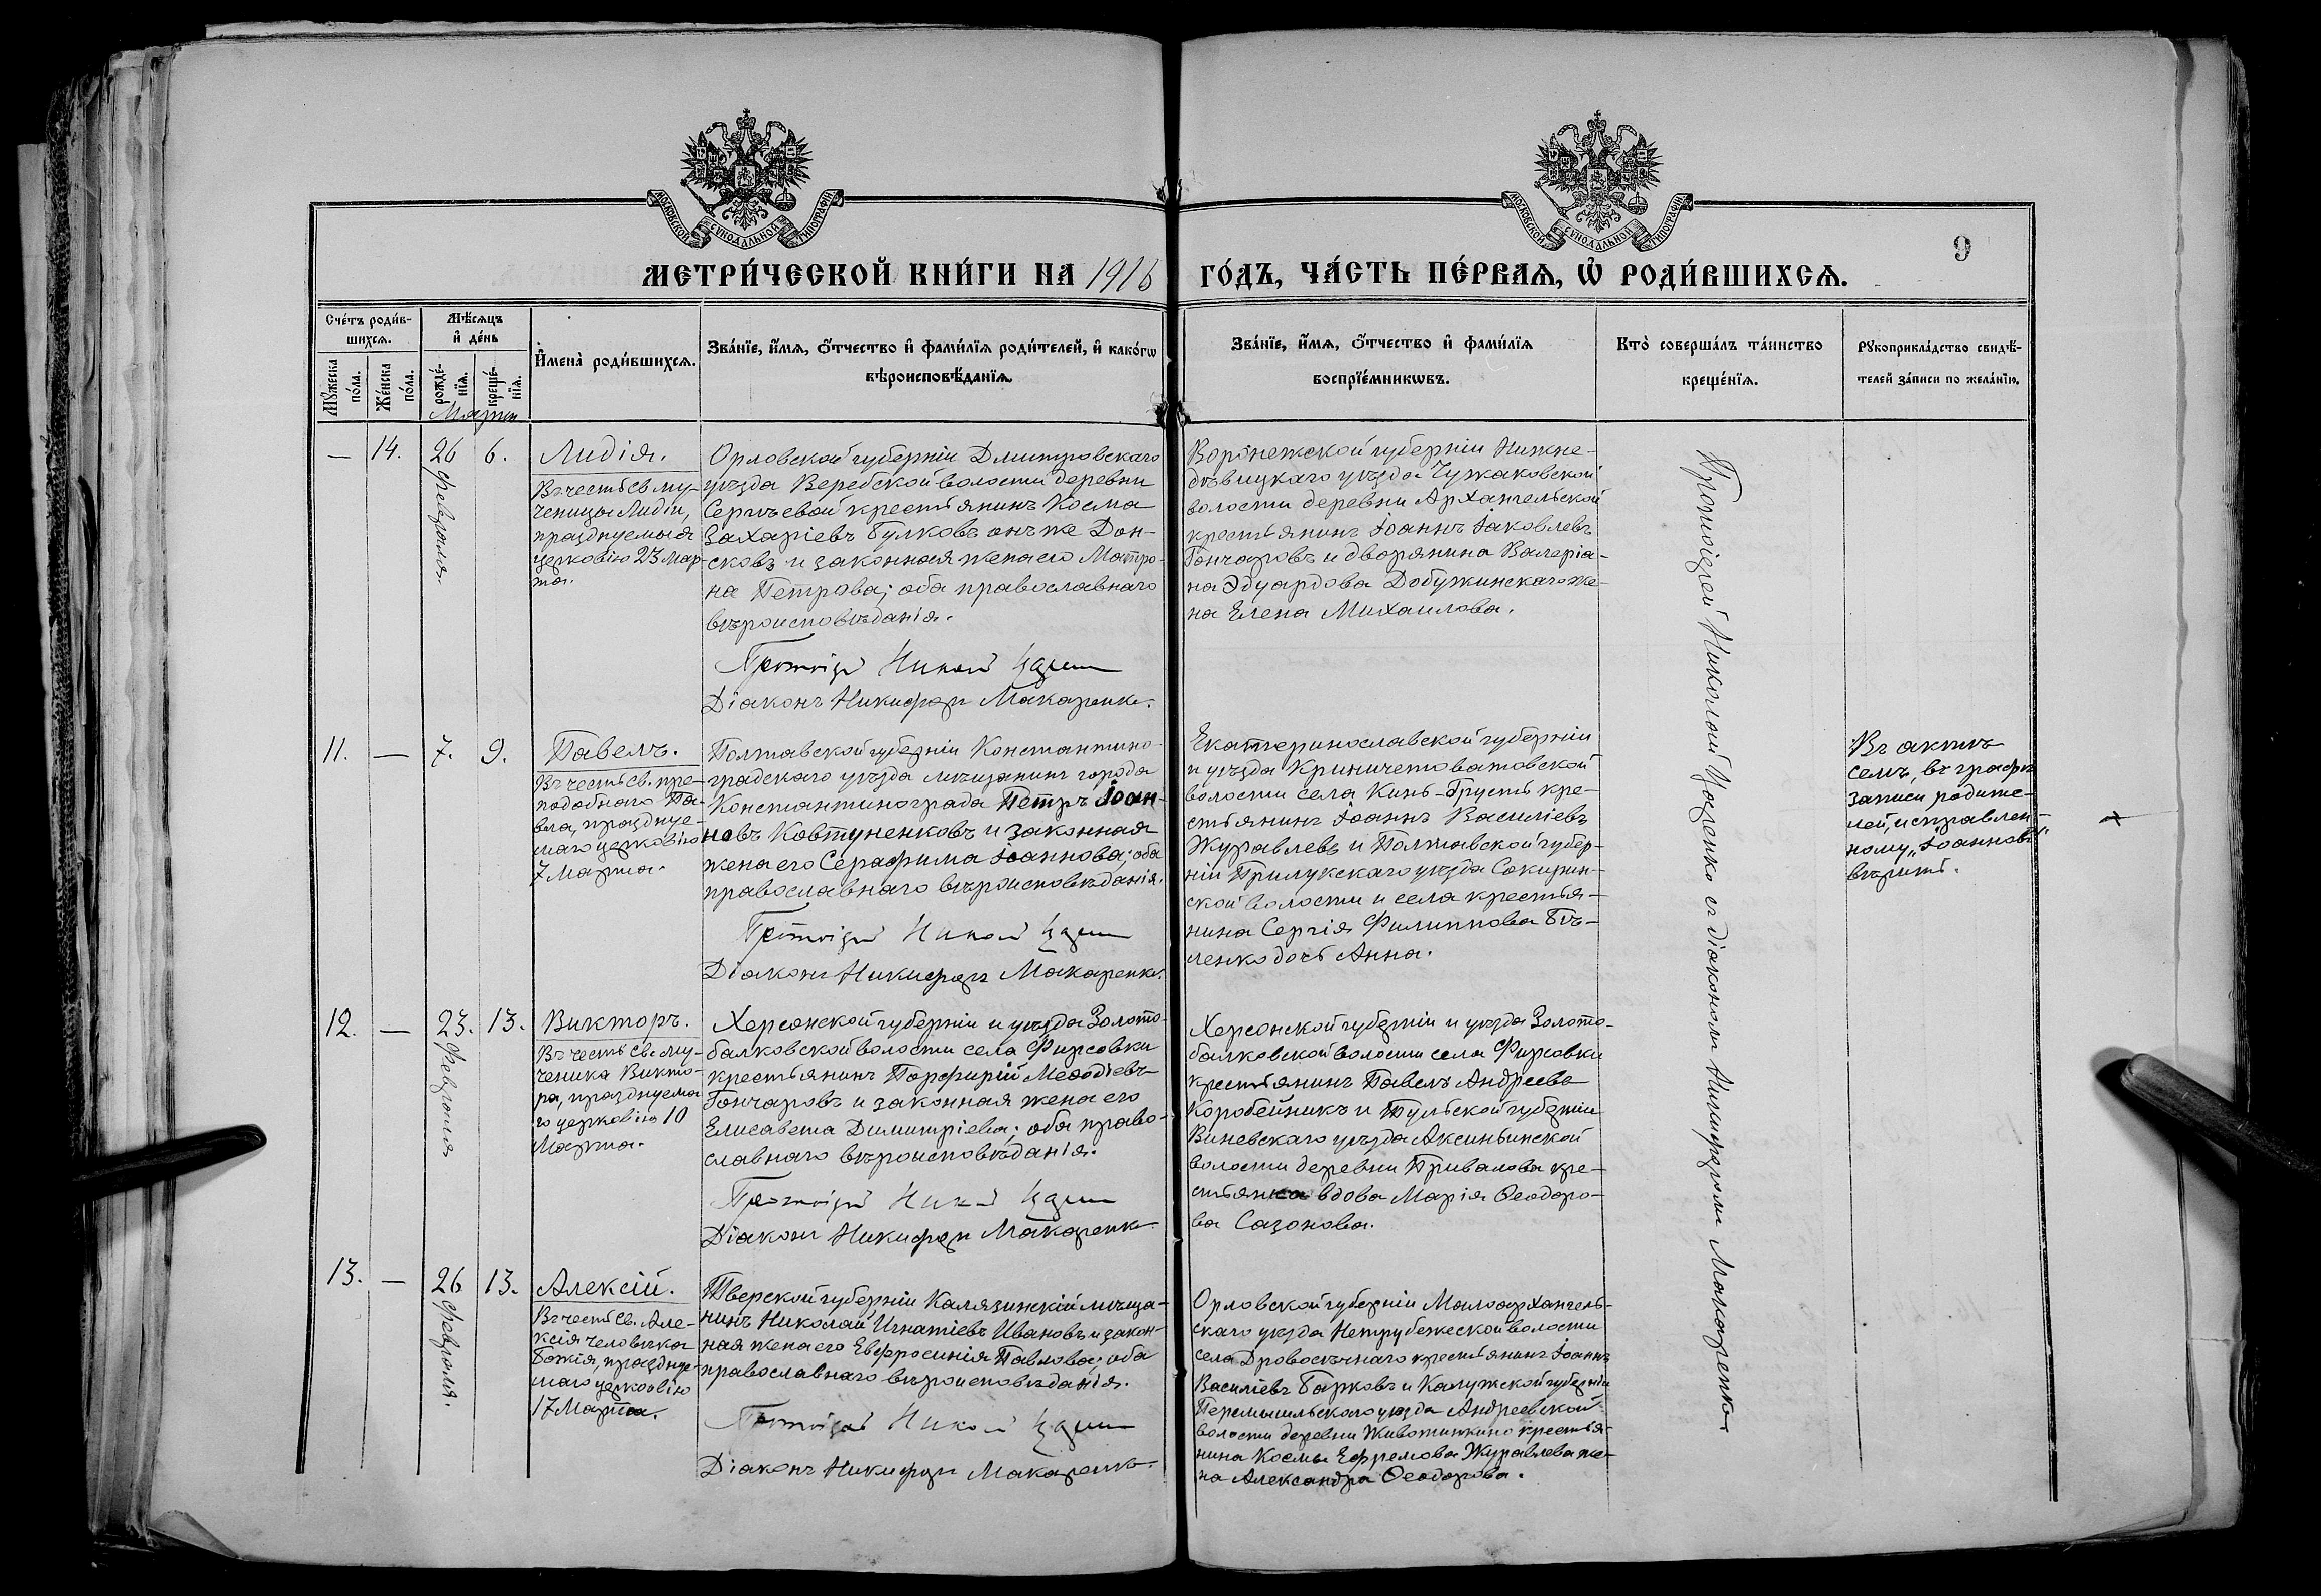 МОСКОВСКОЙ СѴНОДАЛЬНОЙ ТИПОГРАФІИ.
МОСКОВСКОЙ СѴНОДАЛЬНОЙ ТИПОГРАФІИ.
9
МЕТРИ́ЧЕСКОЙ КНИ́ГИ НА 1916 ГО́ДЪ, ЧА́СТЬ ПЕ́РВАѦ, Ѽ РОДИ́ВШИХСѦ.
Сче́тъ роди́в-
шихсѧ.
Мꙋ́жеска
по́ла.
Же́нска
по́ла.
Мѣ́сѧцъ
и҆ де́нь
рожде́-
нїѧ.
креще́-
нїѧ.
И҆мена̀ роди́вшихсѧ.
Зва́нїе, и҆́мѧ, ѻ҆́тчество и҆ фами́лїѧ роди́телей, и҆ како́гѡ
вѣроисповѣ́данїѧ.
Зва́нїе, и҆́мѧ, ѻ҆́тчество и҆ фами́лїѧ
воспрїе́мникѡвъ.
Кто̀ соверша́лъ та́инство
креще́нїѧ.
Рꙋкоприкла́дство свидѣ́-
телей за́писи по жела́нїю.
Марта
— 14. 26 6.
Февраля.
Лидія.
Въ честь св. му-
ченицы Лидіи,
празднуемыя
церковію 23 Мар-
та.
Орловской губерніи Дмитровскаго
уѣзда Веребской волости деревни
Сергѣевой крестьянинъ Косма
Захаріевъ Булковъ онъ же Дон-
сковъ и законная жена его Матро-
на Петрова; оба православнаго
вѣроисповѣданія.
Діаконъ Никифоръ Макаренко.
Воронежской губерніи Нижне-
дѣвицкаго уѣзда Чужаковской
волости деревни Архангельской
крестьянинъ Іоаннъ Іаковлевъ
Гончаровъ и дворянина Валеріа-
на Эдуардова Добужинскаго же-
на Елена Михаилова.
Протоіерей Николай Цаленко съ діакономъ Никифоромъ Макаренко
11. — 7. 9.
Павелъ.
Въ честь св. пре-
подобнаго Па-
вла, празднуе-
маго церковію
7 Марта.
Полтавской губерніи Константино-
градскаго уѣзда мѣщанинъ города
Константинограда Петръ Іоан-
новъ Ковтуненковъ и законная
жена его Серафима Іоаннова; оба
православнаго вѣроисповѣданія.
Діаконъ Никифоръ Макаренко.
Екатеринославской губерніи
и уѣзда Криничеватовской
волости села Кинь-Грусть кре-
стьянинъ Іоаннъ Василіевъ
Журавлевъ и Полтавской губер-
ніи Прилукскаго уѣзда Сокирин-
ской волости и села крестья-
нина Сергія Филиппова Бѣ-
ленко дочь Анна.
Въ актѣ
семъ, въ графѣ
записи родите-
лей, исправлен-
ному „Іоанновъ"
вѣрить.
12. — 23. 13.
Февраля
Викторъ.
Въ честь св. му-
ченика Викто-
ра, празднуема
го церковію 10
Марта.
Херсонской губерніи и уѣзда Золото-
балковской волости села Фирсовки
крестьянинъ Порфирій Меѳодіевъ
Гончаровъ и законная жена его
Елисавета Димитріева; оба право-
славнаго вѣроисповѣданія.
Діаконъ Никифоръ Макаренко
Херсонской губерніи и уѣзда Золото-
балковской волости села Фирсовки
крестьянинъ Павелъ Андреевъ
Коробейникъ и Тульской губерніи
Виневскаго уѣзда Аксиньинской
волости деревни Привалова кре-
стьянка вдова Марія Ѳеодоро-
ва Сазонова.
13. — 26 13.
Февраля.
Алексій.
Въ честь св. Але-
ксія человѣка
Божія, праздную-
маго церковію
17 Марта.
Тверской губерніи Калязинскій мѣща-
нинъ Николай Игнатіевъ Ивановъ и закон-
ная жена его Евфросинія Павлова; оба
православнаго вѣроисповѣданія.
Діаконъ Никифоръ Макаренко.
Орловской губерніи Малоархангель-
скаго уѣзда Нетрубежеской волости
села Дровосѣчнаго крестьянинъ Іоаннъ
Василіевъ Барковъ и Калужской губерніи
Перемышльскаго уѣзда Андреевской
волости деревни Животинкино крестья-
нина Космы Ефремова Журавлева же-
на Александра Ѳеодорова.